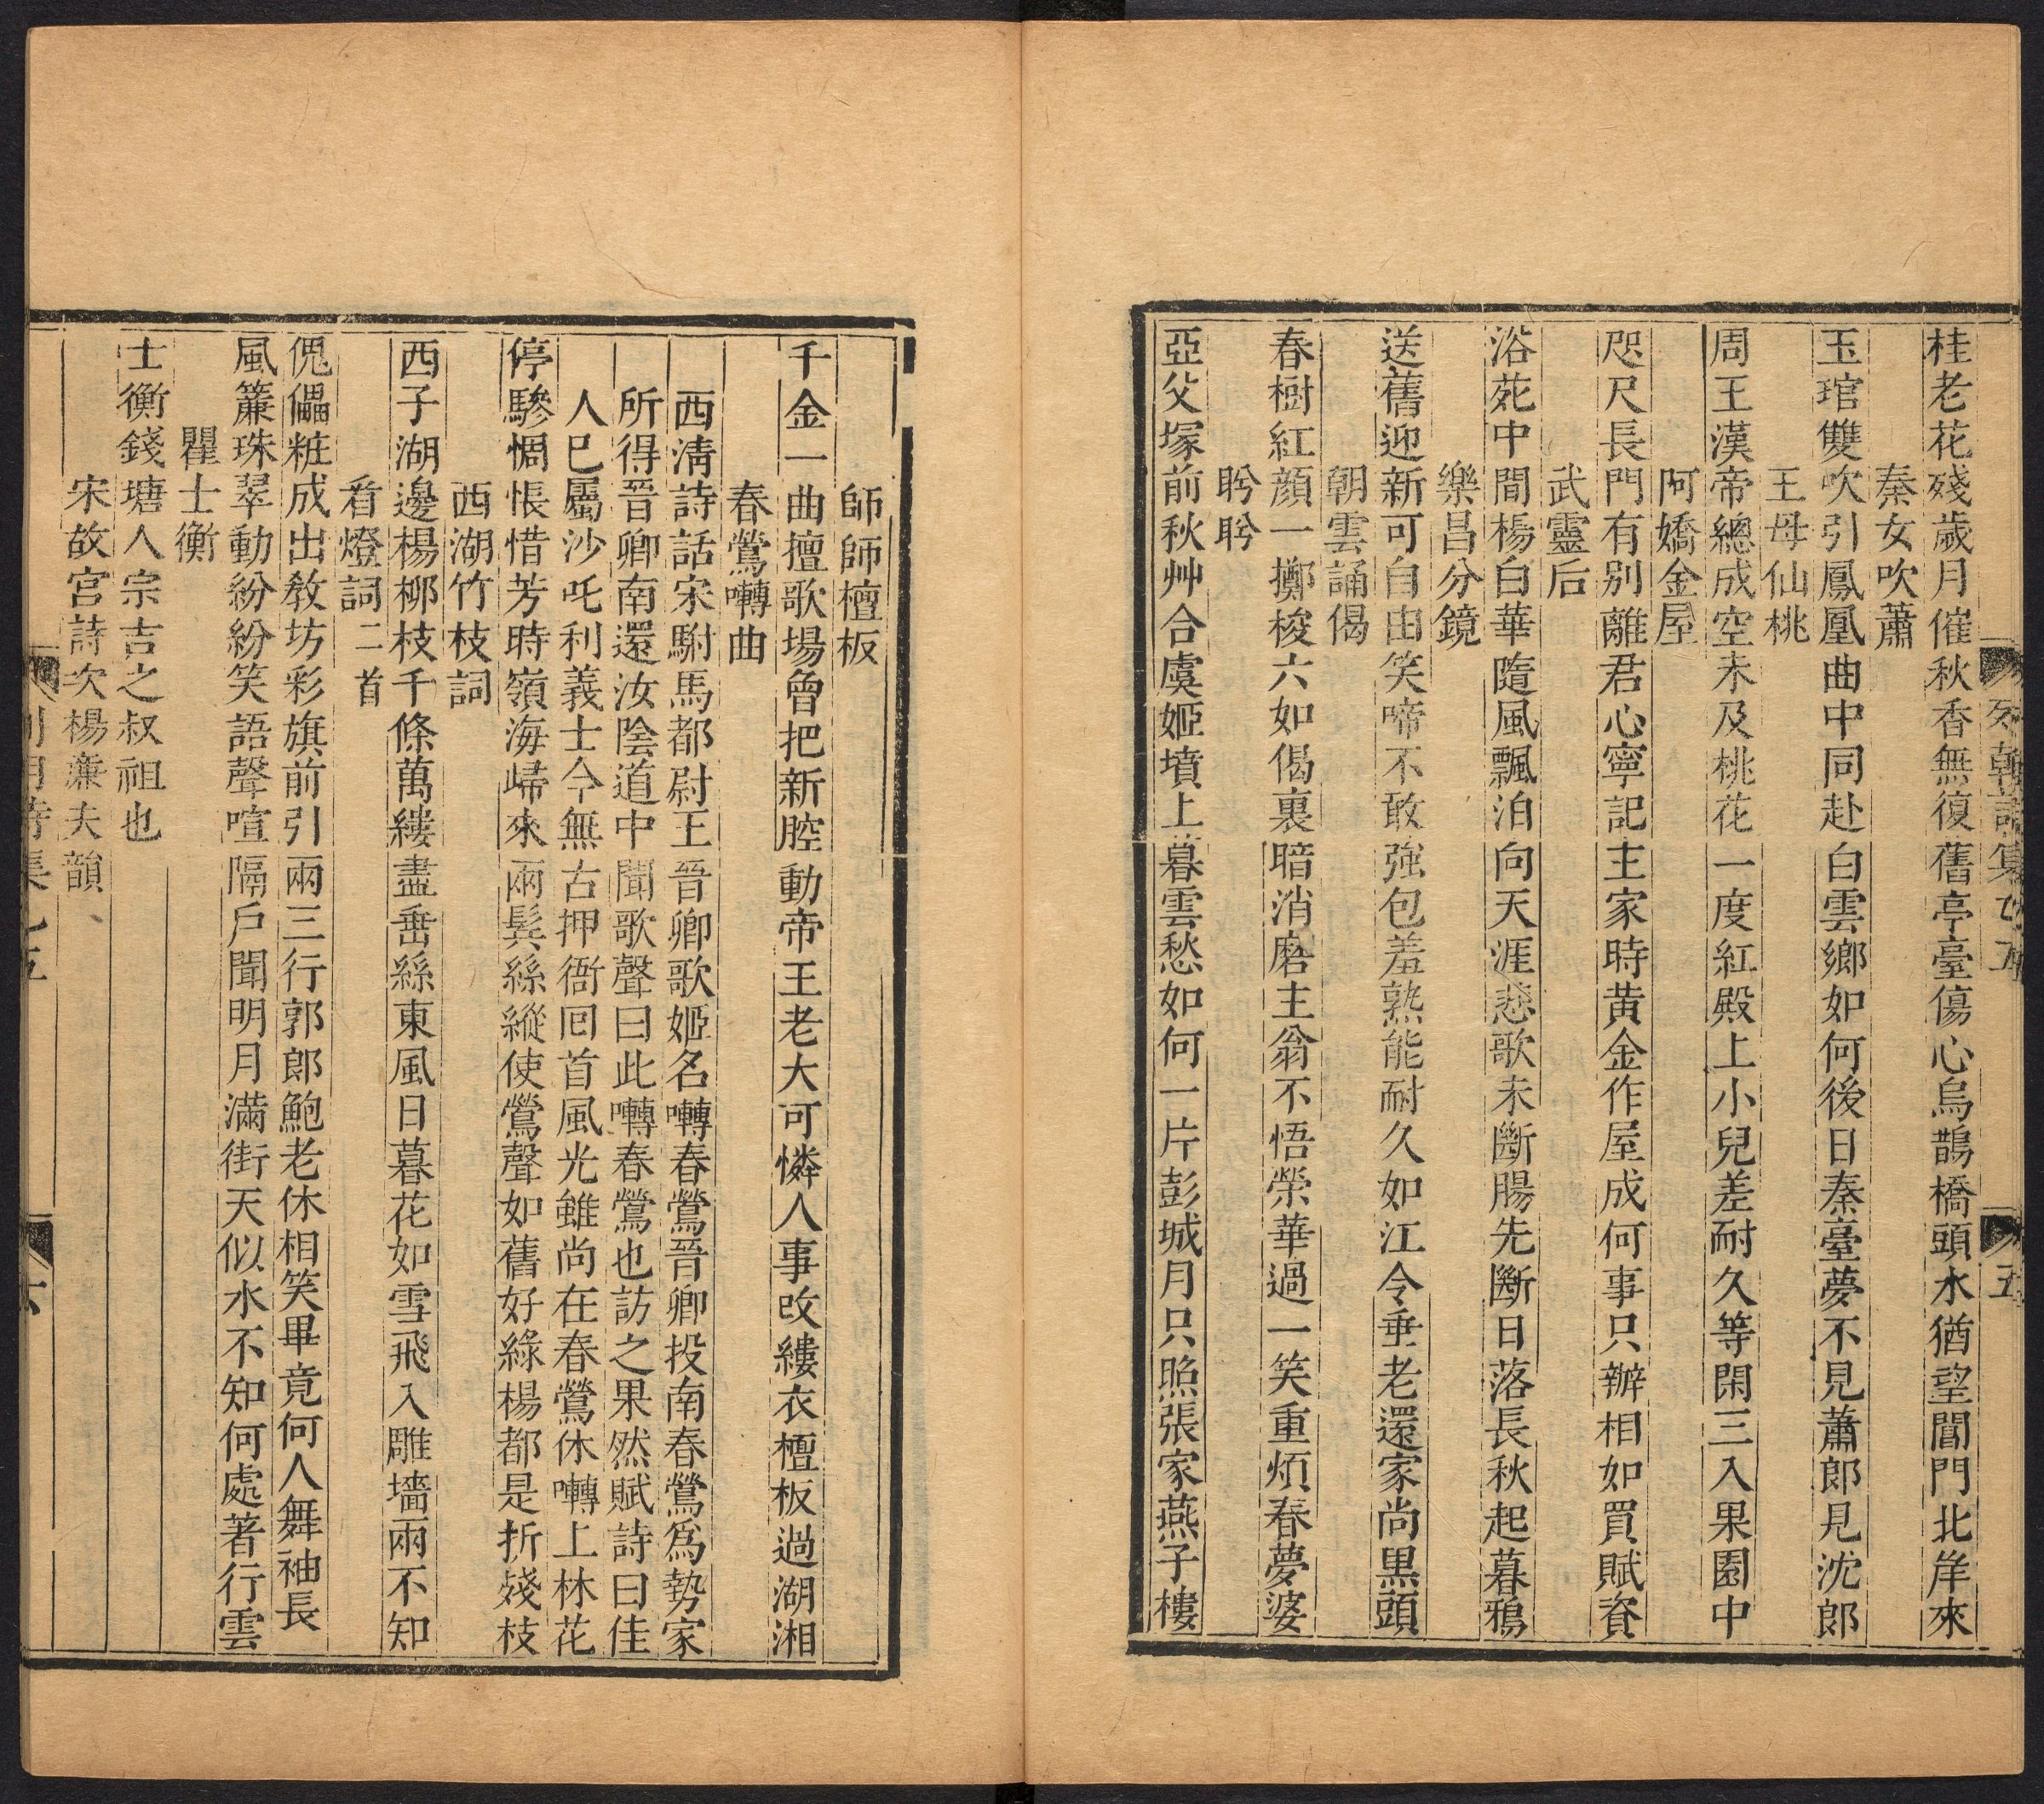 桂老花殘歲月催秋香無復舊亭臺傷心烏鵲橋頭水猶望閶門北岸來
秦女吹蕭
玉琯雙吹引鳳凰曲中同赴白雲鄉如何後日秦臺夢不見蕭郎見沈郎
王母仙桃
周王漢帝總成空未及桃花一度紅殿上小兒差耐久等閑三入果園中
阿嬌金屋
咫尺長門有别離君心寧記主家時黃金作屋成何事只辦相如買賦資
武靈后
浴苑中間楊白華隨風飄泊向天涯悲歌未斷腸先斷日落長秋起暮鴉
樂昌分鏡
送舊迎新可自由笑啼不敢強包羞熟能耐久如江令垂老還家尚黑頭
朝雲誦偈
春樹紅顔一擲梭六如偈裏暗消磨主翁不悟榮華過一笑重煩春夢婆
盻盻
亞父塚前秋艸合虞姬墳上暮雲愁如何一片彭城月只照張家燕子樓
師師檀板
千金一曲擅歌場曾把新腔動帝王老大可憐人事改縷衣檀板過湖湘
春鶯囀曲
西清詩話宋駙馬都尉王晉卿歌姬名囀春鶯晉卿投南春鶯爲勢家
所得晉卿南還汝陰道中聞歌聲曰此囀春鶯也訪之果然賦詩曰佳
人巳屬沙吒利義士今無古押衙囘首風光雖尚在春鶯休囀上林花
停驂惆悵惜芳時嶺海歸來兩鬓絲縱使鶯聲如舊好綠楊都是折殘枝
西湖竹枝詞
西子湖邊楊柳枝千條萬縷盡垂絲東風日暮花如雪飛入雕墻兩不知
看燈詞二首
傀儡粧成出教坊彩旗前引兩三行郭郎鮑老休相笑畢竟何人舞袖長
風簾珠翠動紛紛笑語聲喧隔戶聞明月滿街天似水不知何處著行雲
瞿士衡
士衡錢塘人宗吉之叔祖也
宋故宮詩次楊亷夫韻、